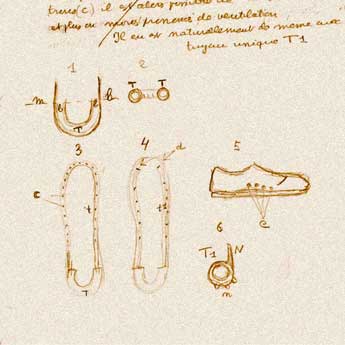 trous (c) il est alors possible de
et plus ou moins prononcés de ventilation
Il en est naturellement de meme avec
tuyau unique T1
1 2
m b e b T T
T
3 4 d 5
c t t1
T
6
T1 N
n
e